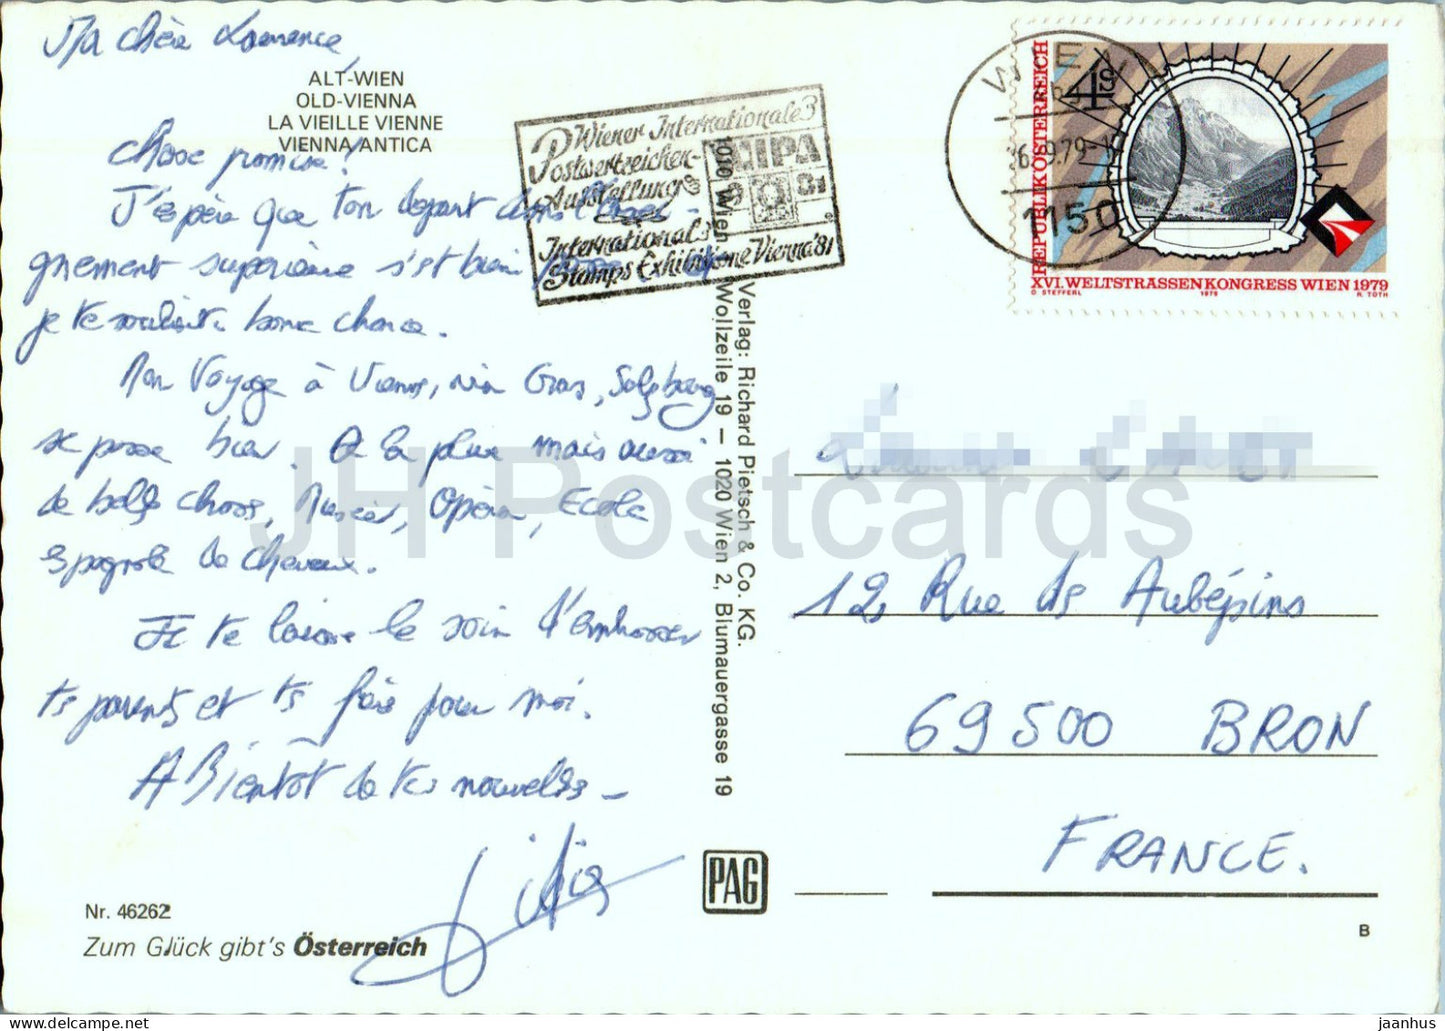 Ma chère Laurence,
ALT-WIEN
OLD-VIENNA
LA VIEILLE VIENNE
VIENNA ANTICA
Chose promise!
J'espère que ton depart dans l'ensei-
gnement superieure s'est bien
je te souhaite bonne chance.
Mon Voyage à Vienne, via Graz, Salzburg
se passe bien. De la pluie mais aussi
de belles choses, Musées, Opéra, Ecole
espagnole de chevaux.
Je te laisse le soin d'embrasser
tes parents et tes frères pour moi.
A Bientôt de tes nouvelles -
Nr. 46262
Zum Glück gibt's Österreich
Wiener Internationale
Postwertzeichen-
Ausstellung
International
Stamps Exhibition Vienna '81
WIPA
81
1010 Wien
Verlag: Richard Pietsch & Co. KG.
Wollzeile 19 – 1020 Wien 2, Blumauergasse 19
PAG
WIEN
26.-9.79-
1150
REPUBLIK ÖSTERREICH
4 S
XVI. WELTSTRASSENKONGRESS WIEN 1979
O STEFFERL 1979 R. TOTH
12, Rue des Aubépins
69500 BRON
FRANCE.
B
JH Postcards
jaanhus @ www.delcampe.net